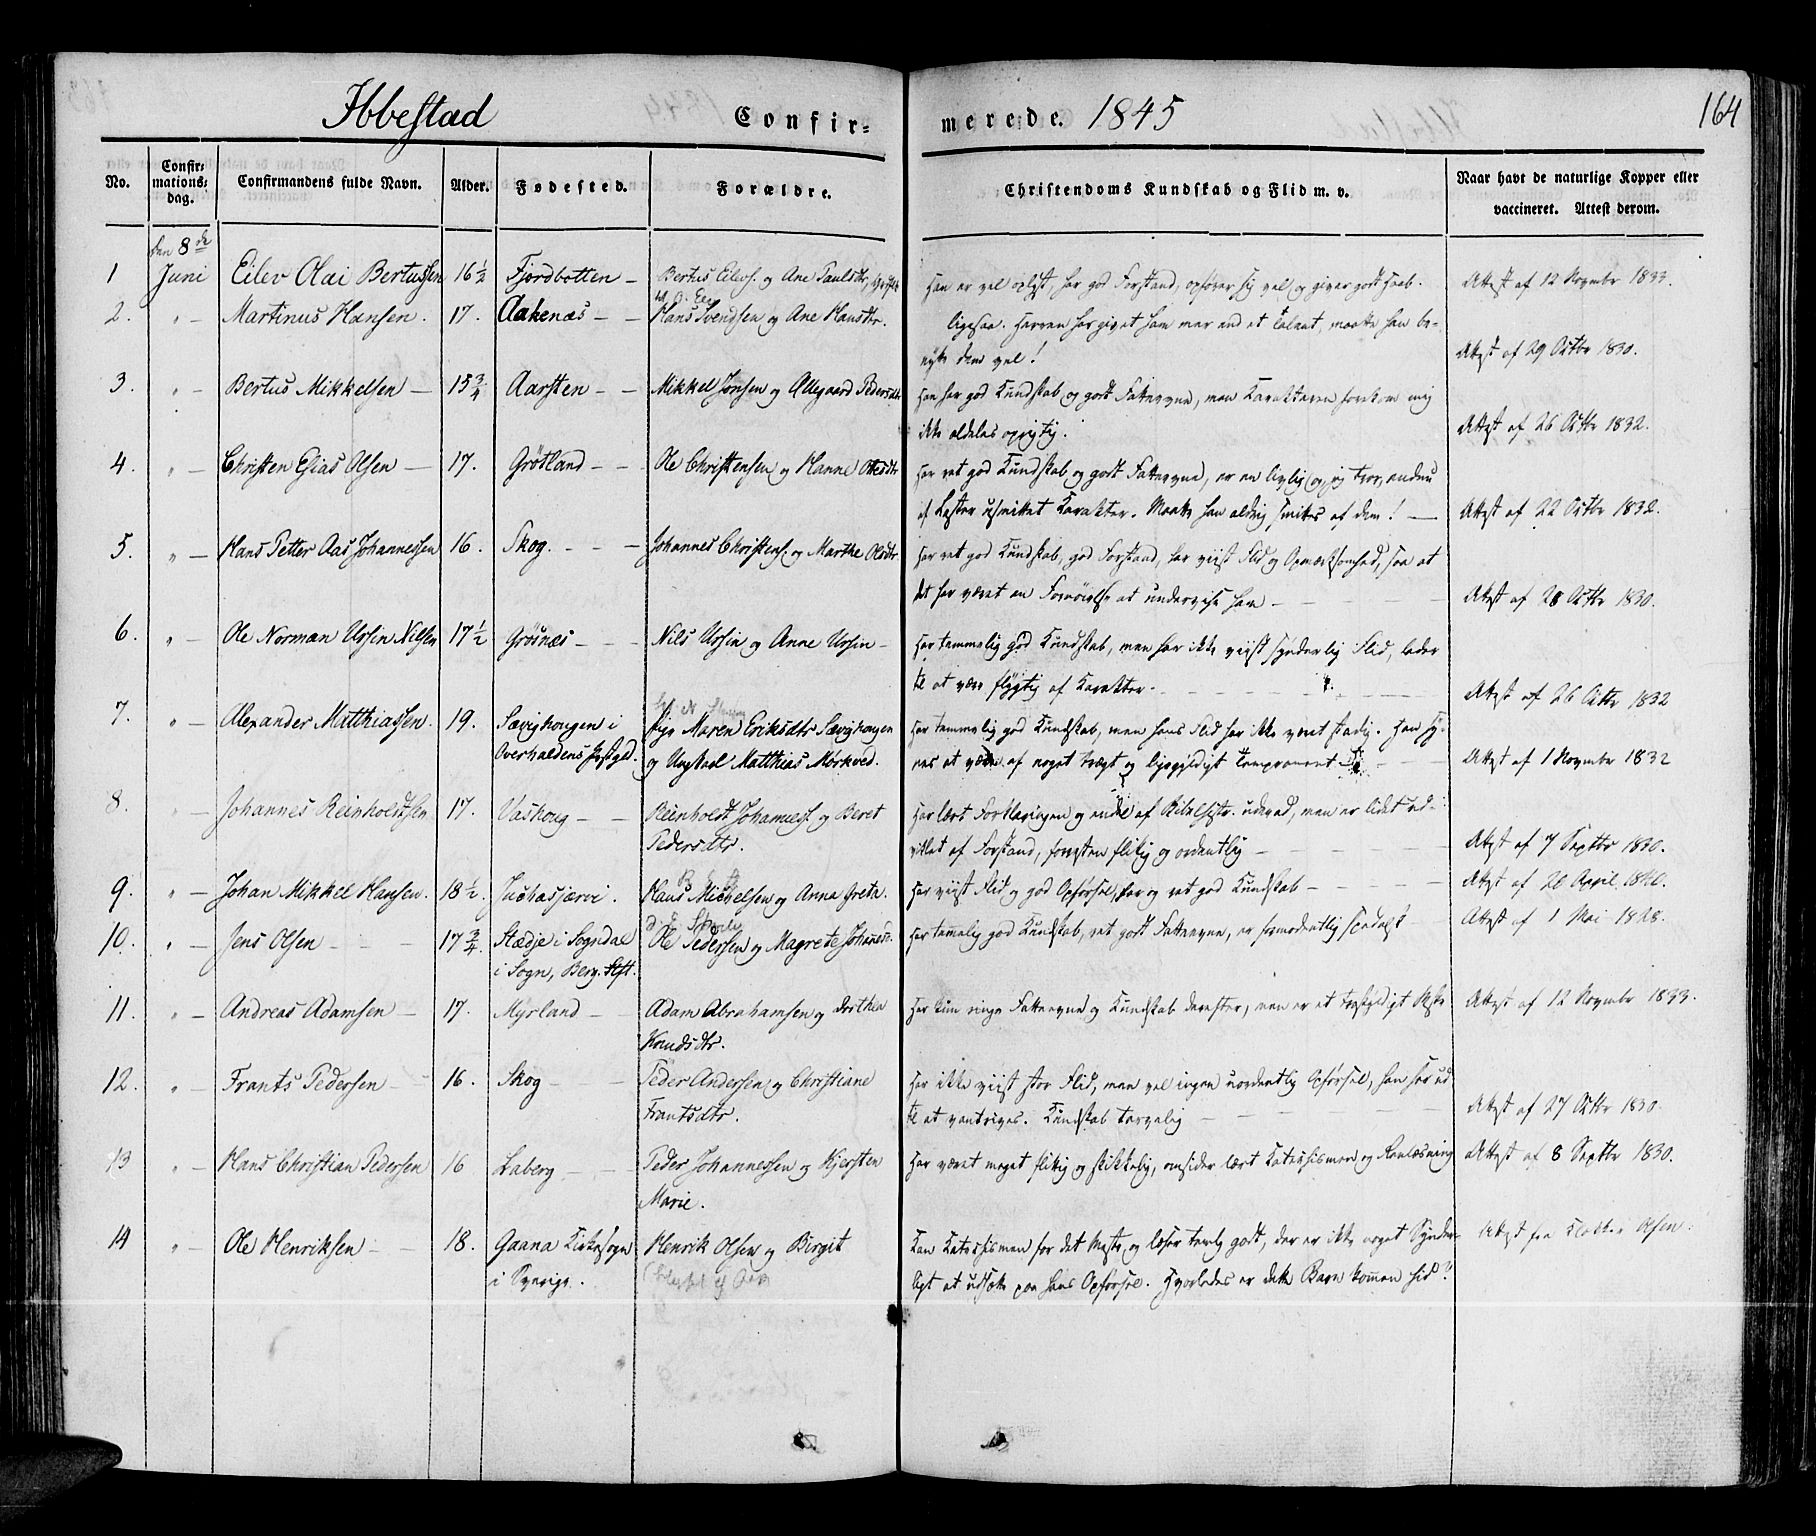 Ibbestad Confir- merede. 1845 164
No. Confir- mations- dag. Confirmandens fulde Navn. Alder. Fødested. Forældre. Christendoms Kundskab og Flid m. v. Naar havt de naturlige Kopper eller vaccineret. Attest derom.
den 8de
1 Juni Eilev Olai Bertussen 16 1/2 Fjordbotten — Bertus Eilevs. og Ane Paulsdtr, Han er vel oplyst, har god Forstand, opfører sig vel og giver godt Haab. Attest af 12 Novmbr 1833.
2. " — Martinus Hansen. 17. Aakenæs — — Hans Svendsen og Ane Hansdtr. ligesaa. Herren har givet ham mer end et Talent, maatte han be-
nytte dem vel! Attest af 29 Octbr 1830.
3. " — Bertus Mikkelsen — 15 3/4 Aarsten — — Mikkel Jonsen og Allegaard Pedersdtr Han har god Kundskab og godt Fatteevne, men Karakteren forekom mig
ikke aldeles oprigtig. Attest af 26 Octbr 1832.
4. " — Christen Esias Olsen — 17. Grøtland — — Ole Christensen og Hanne Ottesdtr Har ret god Kundskab og godt Fatteevne, er en livlig og, jeg troer, endnu
af Laster usmittet Karakter. Maatte han aldrig smittes af dem! — Attest af 22 Octbr 1832.
5. " — Hans Petter Aas Johannessen 16. Skog. — — — Johannes Christens. og Marthe Olsdtr Har ret god Kundskab, god Forstand, har viist Flid og Opmærksomhed, saa at
det har været en Fornøielse at undervise ham — Attest af 28 Octbr 1830.
6. " — Ole Norman Ursin Nilsen 17 1/2 Grøsnæs — — — Nils Ursin og Anne Ursin — Har temmelig god Kundskab, men har ikke viist synderlig Flid, lader
til at være flygtig af Karakter. Attest af 26 Octbr 1832
7. " — Alexander Matthiassen. 19. Sævighougen i Pige Maren Eriksdtr Sævighougen Har temmelig god Kundskab, men hans Flid har ikke været stadig. Han sy-
Overhaldens Præstgd. og Ungkarl Matthias Mørkved. nes at være af noget trægt og ligegyldigt Temperament Attest af 1 Novmbr 1832
8. " — Johannes Reinholdtsen 17. Vaskoug — — Reinholdt Johanness og Beret Har lært Forklaringen og endel af Bibelhistr. udenad, men er lidet ud-
Pedersdtr. viklet af Forstand, forresten flittig og ordentlig — Attest af 7 Septbr 1830.
9. " — Johan Mikkel Hansen. 18 1/2. Juchasjærvi. Hans Michelsen og Anna Greta. Har viist Flid og god Opførsel, har og ret god Kundskab — Attest af 20 April 1840.
10. " — Jens Olsen — — 17 3/4. Stædje i Sogndal Ole Pedersen og Magrete Johannesd. Har temmelig god Kundskab, ret godt Fatteevne, er formodentlig spedalsk Attest af 1 Mai 1828.
i Sogn, Berg. Stift.
11. " — Andreas Adamsen — 17. Myrland — — Adam Abrahamsen og Dorthea Har kun ringe Fatteevne og Kundskab derefter, men er et troskyldigt Attest af 12 Novmbr 1833.
Knudsdtr.
12. " — Frants Pedersen — 16. Skog — — Peder Andersen og Christiane Har ikke viist stor Flid, men vel ingen uordentlig Opførsel, han seer ud
Frantsdtr. til at vantrives. Kundskab tarvelig — Attest af 27 Octbr 1830.
13 " — Hans Christian Pedersen 16 Laberg — — Peder Johannessen og Kjersten Har været meget flittig og skikkelig, omsider lært Katechismen og Areelæsning Attest af 8 Septbr 1830.
Marie.
14 " — Ole Henriksen — — 18. Gaana Kirkesogn Henrik Olsen og Birgit Kan Katechismen for det Meste og læser temlig godt, der er ikke noget Synder- Attest fra Olsen.
i Sverige. ligt at udsætte paa hans Opførsel. Hvorledes er dette Barn kommen hid?